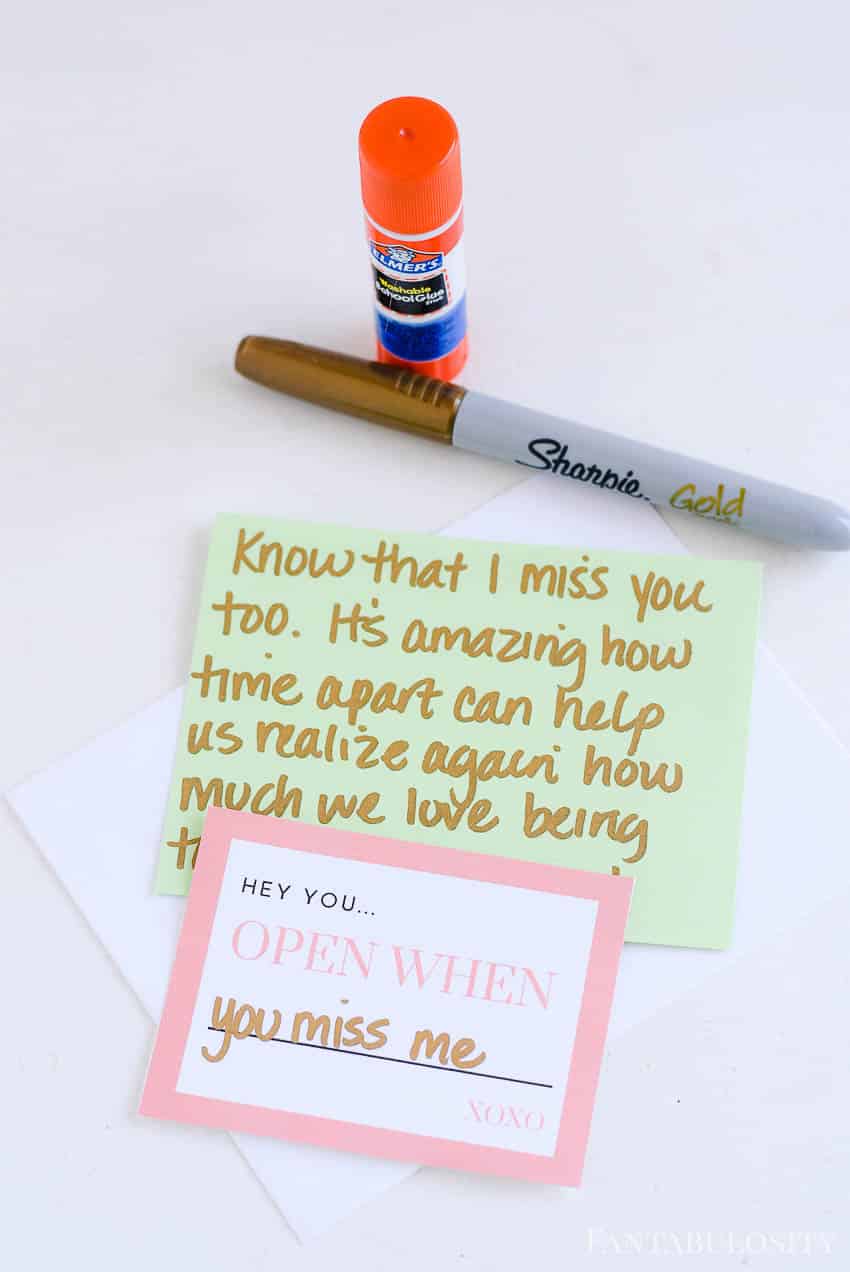 ELMER'S
Washable
School Glue
Stick
Sharpie.
Gold
Know that I miss you
too. It's amazing how
time apart can help
us realize again how
much we love being
HEY YOU...
OPEN WHEN
you miss me
XOXO
FANTABULOSITY